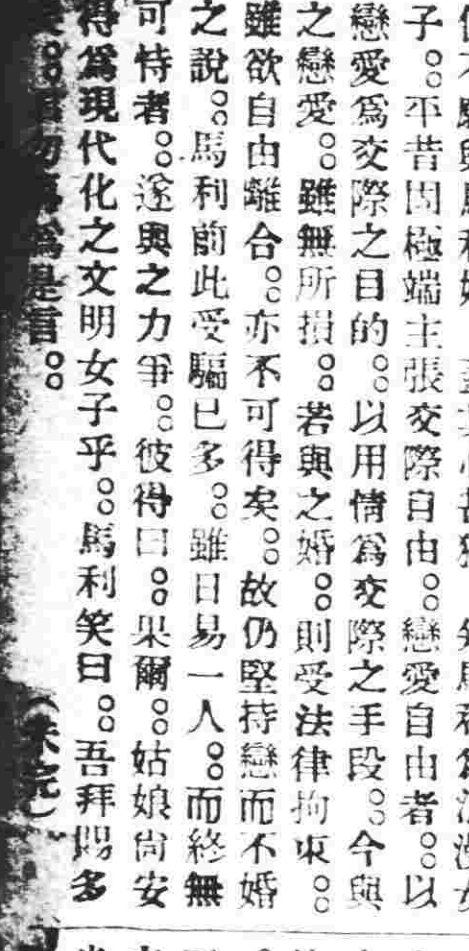 子。平昔固極端主張交際自由。戀愛自由者。以
戀愛爲交際之目的。以用情爲交際之手段。今與
之戀愛。雖無所損。若與之婚。則受法律拘束。
雖欲自由離合。亦不可得矣。故仍堅持戀而不婚
之說。馬利前此受騙已多。雖日易一人。而終無
可恃者。遂與之力爭。彼得曰。果爾。姑娘尙安
得爲現代化之文明女子乎。馬利笑曰。吾拜賜多
矣。君勿再爲是言。
(未完)